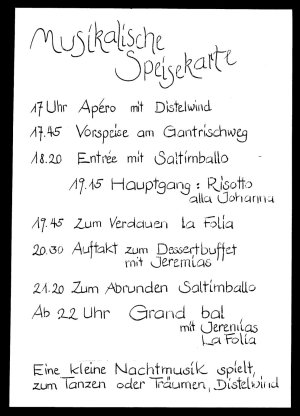 Musikalische
Speisekarte
17 Uhr Apéro mit Distelwind
17.45 Vorspeise am Gantrischweg
18.20 Entrée mit Saltimballo
19.15 Hauptgang: Risotto
alla Johanna
19.45 Zum Verdauen La Folia
20.30 Auftakt zum Dessertbuffet
mit Jeremias
21.20 Zum Abrunden Saltimballo
Ab 22 Uhr Grand bal
mit Jeremias
La Folia
Eine kleine Nachtmusik spielt,
zum Tanzen oder Träumen, Distelwind